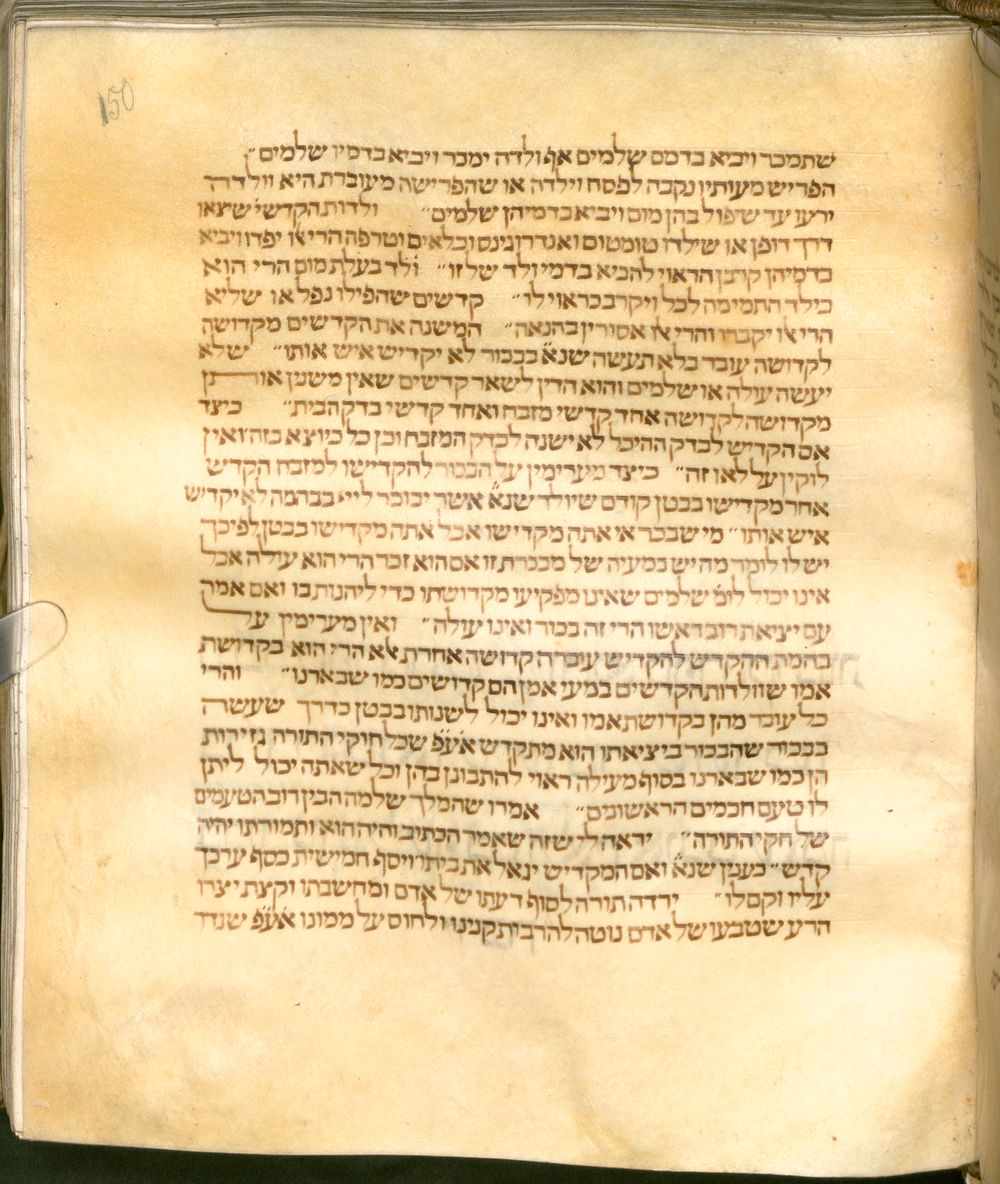 150
שתמכר ויביא בדמם שלמים אף ולדה ימכר ויביא בדמיו שלמים״
הפריש מעותין נקבה לפסח וילדה או שהפרישה מעוברת היא וולדה
ירעו עד שיפול בהן מום ויביא בדמיהן שלמים״ ולדות הקדשי׳ שיצאו
דרך דופן או שילדו טומטום ואנדרוגינס וכלאים וטרפה הרי אלו יפדו ויביא
בדמיהן קרבן הראוי להביא בדמי ולד של זו״ ולד בעלת מום הרי הוא
כילד התמימה לכל ויקרב כראוי לו״ קדשים שהפילו נפל או שליא
הרי אלו יקברו והרי אלו אסורין בהנאה״ המשנה את הקדשים מקדושה
לקדושה עובר בלא תעשה שנא׳ בבכור לא יקדיש איש אותו״ שלא
יעשה עולה או שלמים והוא הדין לשאר קדשים שאין משנין אותן
מקדושה לקדושה אחד קדשי מזבח ואחד קדשי בדק הבית״ כיצד
אם הקדיש לבדק ההיכל לא ישנה לבדק המזבח וכן כל כיוצא בזה ואין
לוקין על לאו זה״ כיצד מערימין על הבכור להקדישו למזבח הקדש
אחר מקדישו בבטן קודם שיולד שנא׳ אשר יבוכר לייי בבהמה לא יקדיש
איש אותו״ מי שבכר אי אתה מקדישו אבל אתה מקדישו בבטן לפיכך
יש לו לומר מה יש במעיה של מבכרת זו אם הוא זכר הרי הוא עולה אבל
אינו יכול לומ׳ שלמים שאינו מפקיעו מקדושתו כדי ליהנות בו ואם אמר
עם יציאת רוב ראשו הרי זה בכור ואינו עולה״ ואין מערימין על
בהמת ההקדש להקדיש עוברה קדושה אחרת אלא הרי הוא בקדושת
אמו שוולדות הקדשים במעי אמן הם קדושים כמו שבארנו״ והרי
כל עובר מהן בקדושת אמו ואינו יכול לשנותו בבטן כדרך שעשה
בבכור שהבכור ביציאתו הוא מתקדש אעפ שכל חוקי התורה גזירות
הן כמו שבארנו בסוף מעילה ראוי להתבונן בהן וכל שאתה יכול ליתן
לו טעם חכמים הראשונים״ אמרו שהמלך שלמה הבין רוב הטעמים
של חקי התורה״ יראה לי שזה שאמר הכתוב והיה הוא ותמורתו יהיה
קדש״ כענין שנא׳ ואם המקדיש יגאל את ביתו ויסף חמישית כסף ערכך
עליו וקם לו״ ירדה תורה לסוף דעתו של אדם ומחשבתו וקצת יצרו
הרע שטבעו של אדם נוטה להרבית קנינו ולחוס על ממונו אעפ שנדר